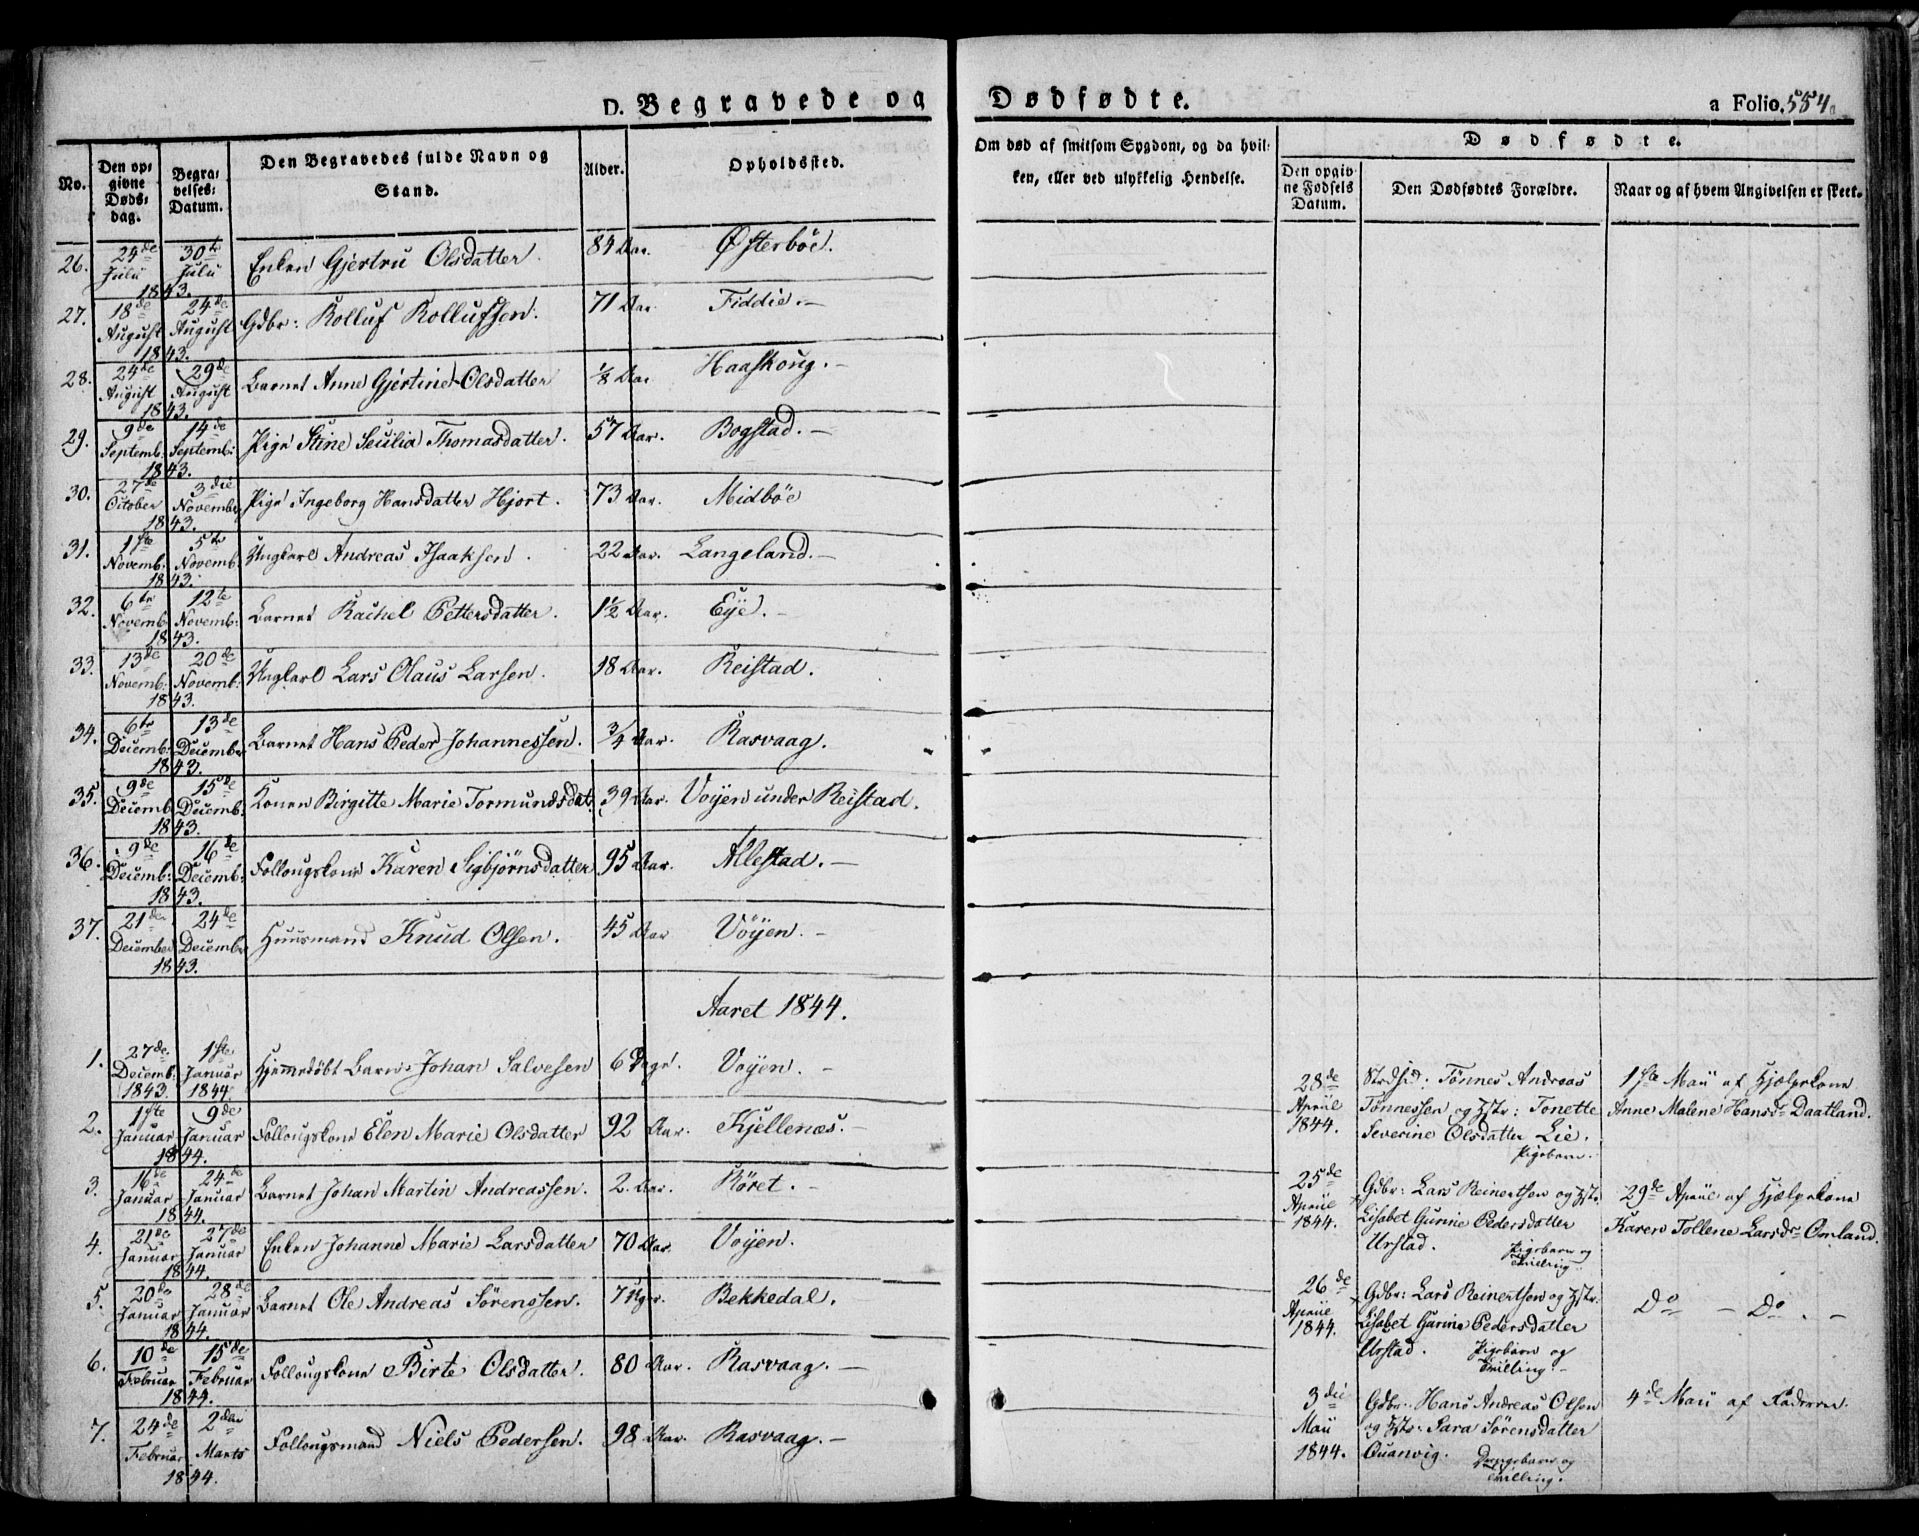 D. Begravede og Dødfødte.
a Folio. 554
No.
Den op-
givne
Døds-
dag.
Begra-
velses-
Datum.
Den Begravedes fulde Navn og
Stand.
Alder.
Opholdssted.
Om død af smitsom Sygdom, og da hvil-
ken, eller ved ulykkelig Hendelse.
Dødfødte.
Den opgiv-
ne Fødsels
Datum.
Den Dødfødtes Forældre.
Naar og af hvem Angivelsen er skeet.
26. 24de Julii 30te Julii 1843. Enken Gjertru Olsdatter. 84 Aar. Østerböe.
27. 18de August 24de August 1843. Gdbr: Rolluf Rollufsen. 71 Aar. Fiddie.-
28. 24de August 29de August 1843. Barnet Anne Gjertine Olsdatter 1/8 Aar Haaskoug.-
29. 9de Septemb. 14de Septemb: 1843. Pige Stine Secilia Thomasdatter. 57 Aar. Bogstad.-
30. 27de October 3die November 1843. Pige Ingeborg Hansdatter Hjort. 73 Aar. Midböe
31. 1ste Novemb: 5te Novemb. 1843. Ungkarl Andreas Isaaksen. 22 Aar. Langeland.-
32. 6te Novemb. 12te Novemb: 1843. Barnet Rachel Pettersdatter. 1½ Aar. Eye.-
33. 13de Novemb: 20de Novemb: 1843. Ungkarl Lars Olaus Larsen. 18 Aar. Reistad.
34. 6te Decemb: 13de December 1843. Barnet Hans Peder Johannessen. 3/4 Aar. Rasvaag.
35. 9de Decemb 15de Decemb: 1843. Konen Birgitte Marie Tormundsdat. 39 Aar. Voÿen under Reistad.
36. 9de Decemb: 16de Decemb: 1843. Follougskone Karen Sigbjørnsdatter 95 Aar. Allestad.-
37. 21de December 24de December 1843. Huusmand Knud Olsen. 45 Aar Vöyen.-
Aaret 1844.
1. 27de Decemb. 1843. 1ste Januar 1844. Hjemedöbt Barn Johan Salvesen 6 Dage. Voyen.-
2. 1ste Januar 9de Januar 1844. Follougskone Elen Marie Olsdatter 92 Aar. Kjellenæs.-
3. 16de Januar 24de Januar 1844. Barnet Johan Martin Andreassen. 2. Aar. Röret.-
4. 21de Januar 27de Januar 1844. Enken Johanne Marie Larsdatter 70 Aar. Voyen.
5. 20de Januar 28de Januar 1844. Barnet Ole Andreas Sörenssen. 7 Uger. Bekkedal.
6. 10de Februar 15de Februar 1844. Follougskone Birte Olsdatter. 80 Aar. Rasvaag.-
7. 24de Februar 2den Marts 1844. Follougsmand Niels Pedersen. 98 Aar. Rasvaag.-
28de Apriil 1844.
Tønnes Andreas
Tønnessen og Hstr: Tonette
Severine Olsdatter Lie.
Pigebarn.
1ste Maii af Hjælpekone
Anne Malene Hansd. Daatland.
25de Apriil 1844.
Gdbr: Lars Reinertsen og Hstr.
Lisabet Gurine Pedersdatter
Urstad. Pigebarn og
Tvilling.
29de Apriil af Hjælpekone
Karen Tollene Larsd. Omland.
26de Apriil 1844.
Gdbr: Lars Reinertsen og Hstr.
Lisabet Gurine Pedersdatter
Urstad. Pigebarn og
Tvilling.-
Do - Do.-
3die Maii 1844.
Gdbr: Hans Andreas Olsen
og Hstr: Sara Sörensdatter
Quanvig. Drengebarn og
Tvilling.
4de Maii af Faderen.